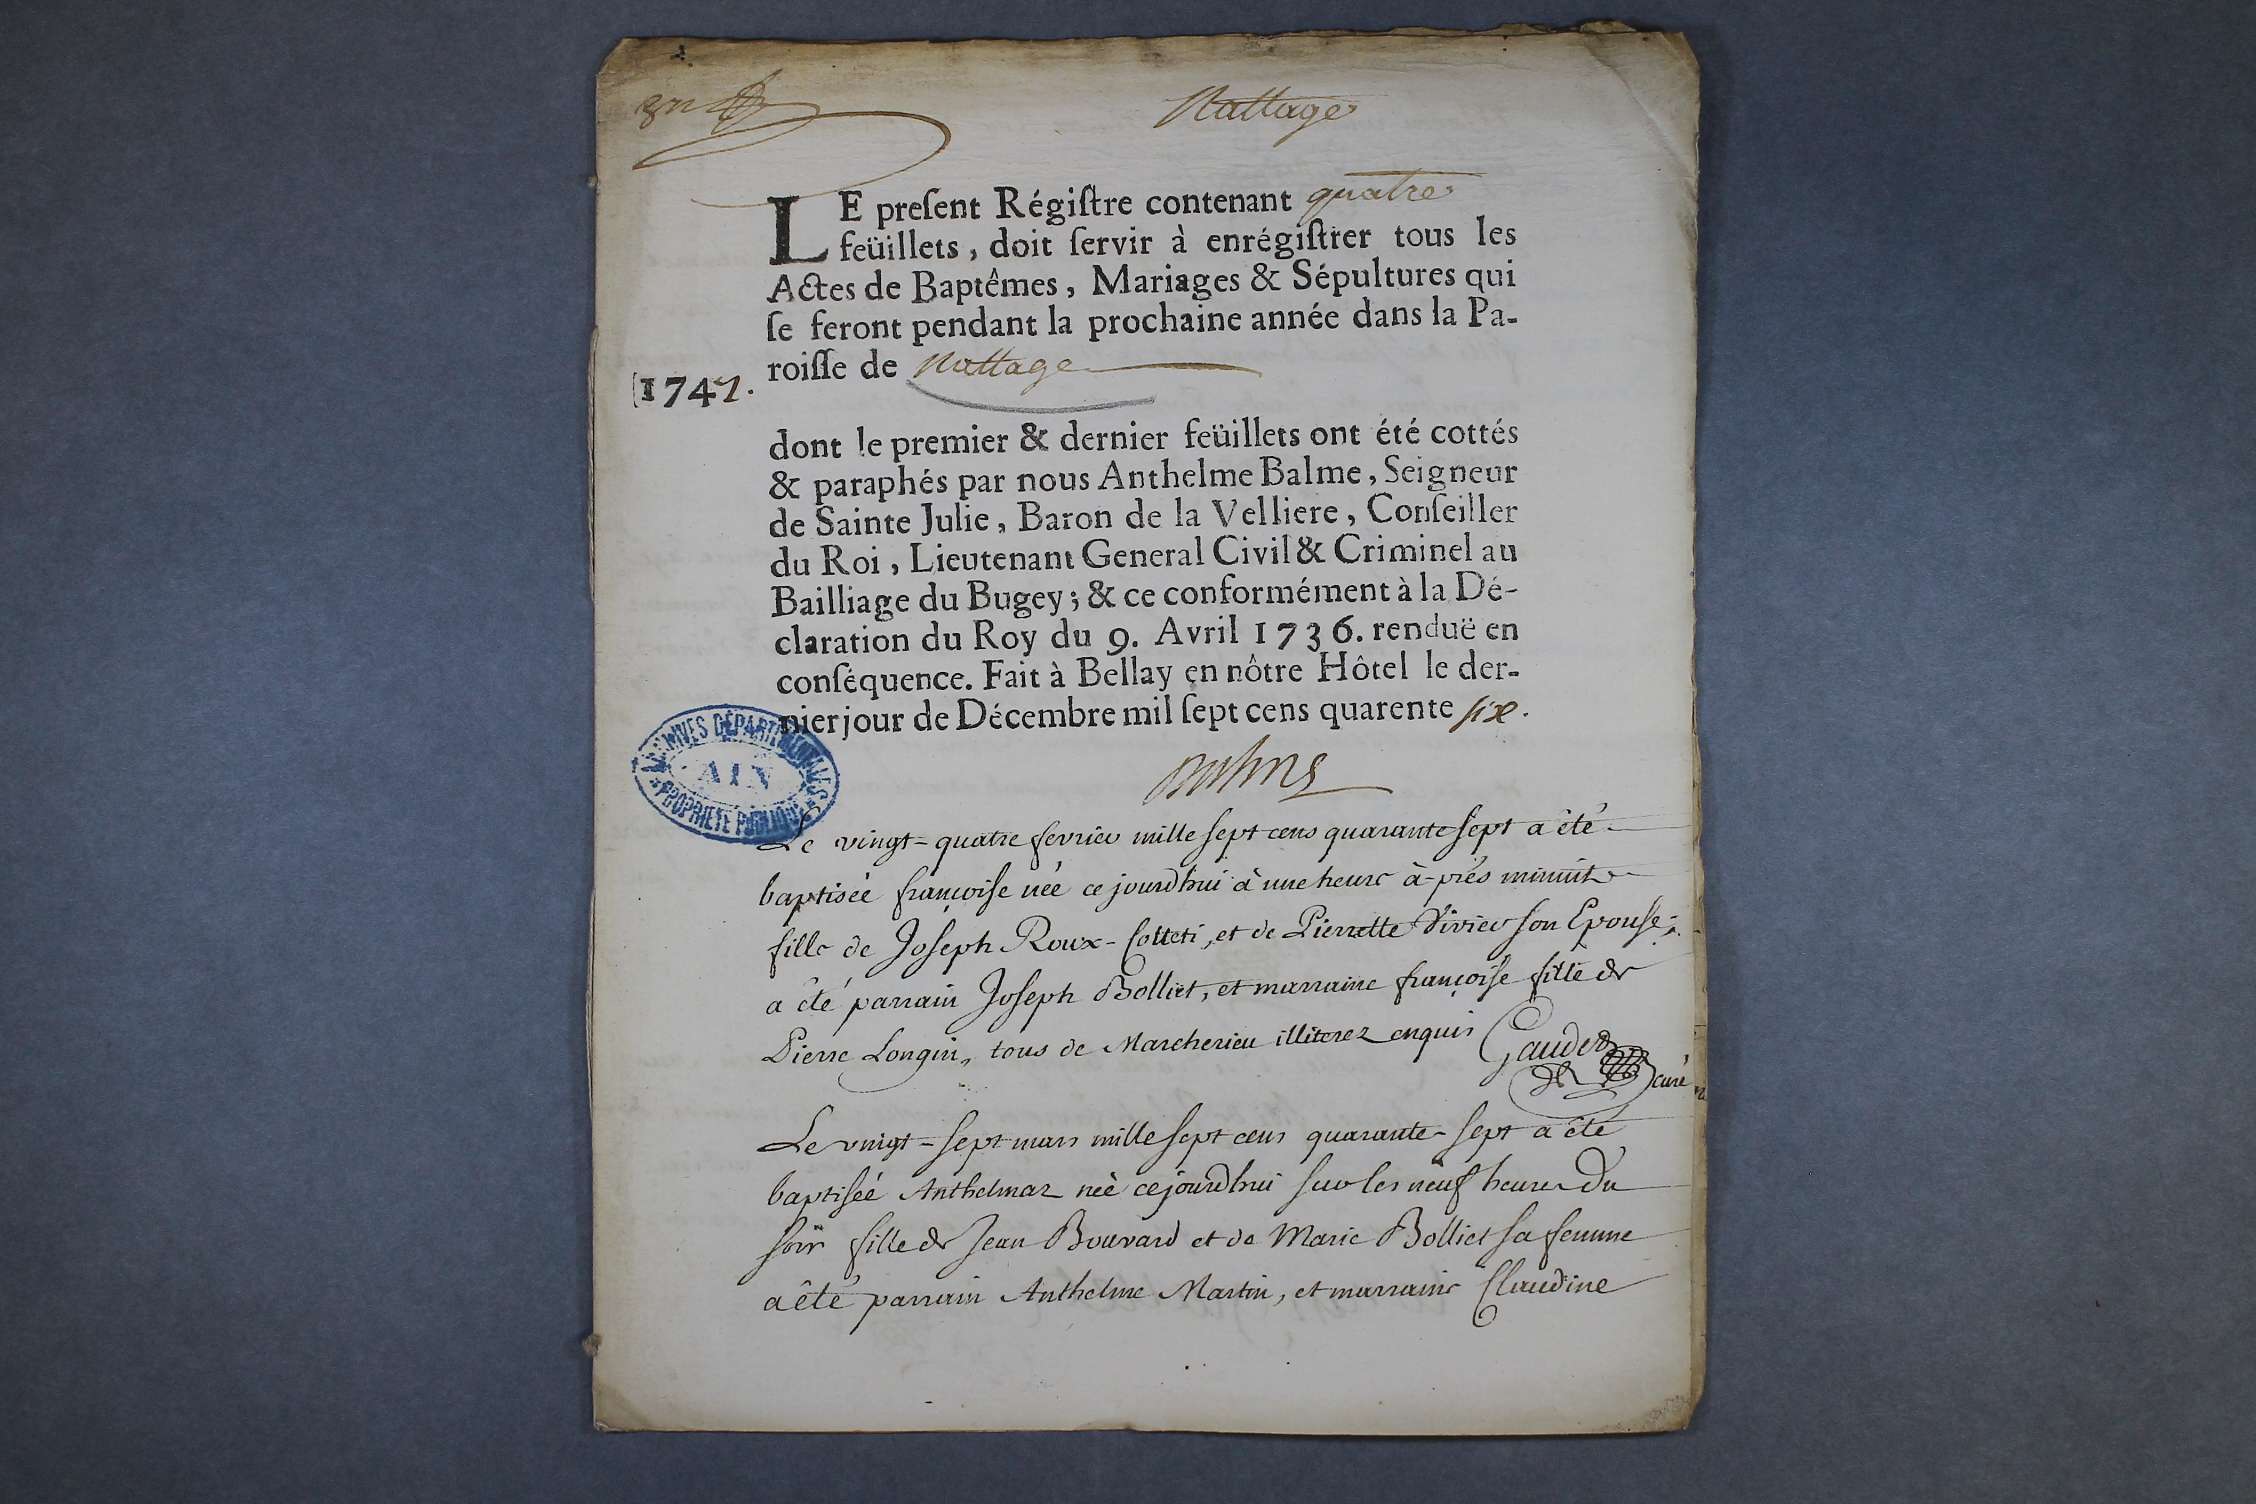 Nattage
LE preſent Régiſtre contenant quatre
feüillets, doit ſervir à enrégiſtrer tous les
Actes de Baptêmes, Mariages & Sépultures qui
ſe feront pendant la prochaine année dans la Pa-
roiſſe de Nattage
1747.
dont le premier & dernier feüillets ont été cottés
& paraphés par nous Anthelme Balme, Seigneur
de Sainte Julie, Baron de la Velliere, Conſeiller
du Roi, Lieutenant General Civil & Criminel au
Bailliage du Bugey; & ce conformément à la Dé-
claration du Roy du 9. Avril 1736. renduë en
conſéquence. Fait à Bellay en nôtre Hôtel le der-
nier jour de Décembre mil ſept cens quarente six.
ARCHIVES DÉPARTEMENTALES
AIN
PROPRIÉTÉ PUBLIQUE
Balme
Le vingt-quatre fevrier mille sept cens quarante sept a êté
baptisée françoise née ce jourdhui à une heure à-prés minuit
fille de Joseph Roux-Colleti, et de Pierrette Vivier son Epouse;
a êté parrain Joseph Bolliet, et marraine françoise fille de
Pierre Longin, tous de Marcherieu illiterez enquis Gauder
curé
Le vingt-sept mars mille sept cens quarante-sept a êté
baptiseé Anthelmaz neè cejourdhui sur les neuf heures du
soir fille de Jean Bouvard et de Marie Bolliet sa femme
a êté parrain Anthelme Martin, et marraine Claudine